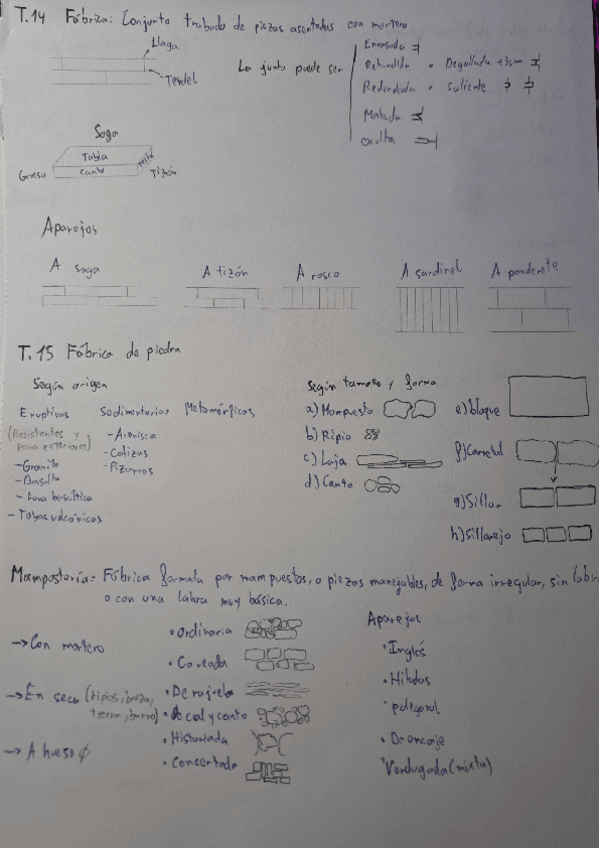 T.14 Fábrica: Conjunto trabado de piezas asentadas con mortero
Llaga
Tendel
La junta puede ser
Enrasada
Rehundida o Degollada <3cm
Redondeada o saliente
Matada
Oculta
Soga
Tabla
Canto
Testa
Grueso
Tizón
Aparejos
A soga
A tizón
A rosca
A sardinel
A panderete
T.15 Fábrica de piedra
Según origen
Eruptivas
(Resistentes y
para exteriores)
- Granito
- Basalto
- Lava basáltica
- Tobas volcánicas
Sedimentarias
- Arenisca
- Calizas
- Pizarras
Metamórficas
Según tamaño y forma
a) Mampuesto
b) Ripio
c) Laja
d) Canto
e) bloque
f) Carretal
g) Sillar
h) Sillarejo
Mampostería: Fábrica formada por mampuestos, o piezas manejables, de forma irregular, sin labra
o con una labra muy básica.
→ Con mortero
→ En seco (ripios, broza,
tierra, barro)
→ A hueso
• Ordinaria
• Careada
• De rajuela
• de cal y canto
• Historiada
• Concertada
Aparejos
• Inglés
• Hiladas
• poligonal
• De encaje
• Verdugada (mixta)